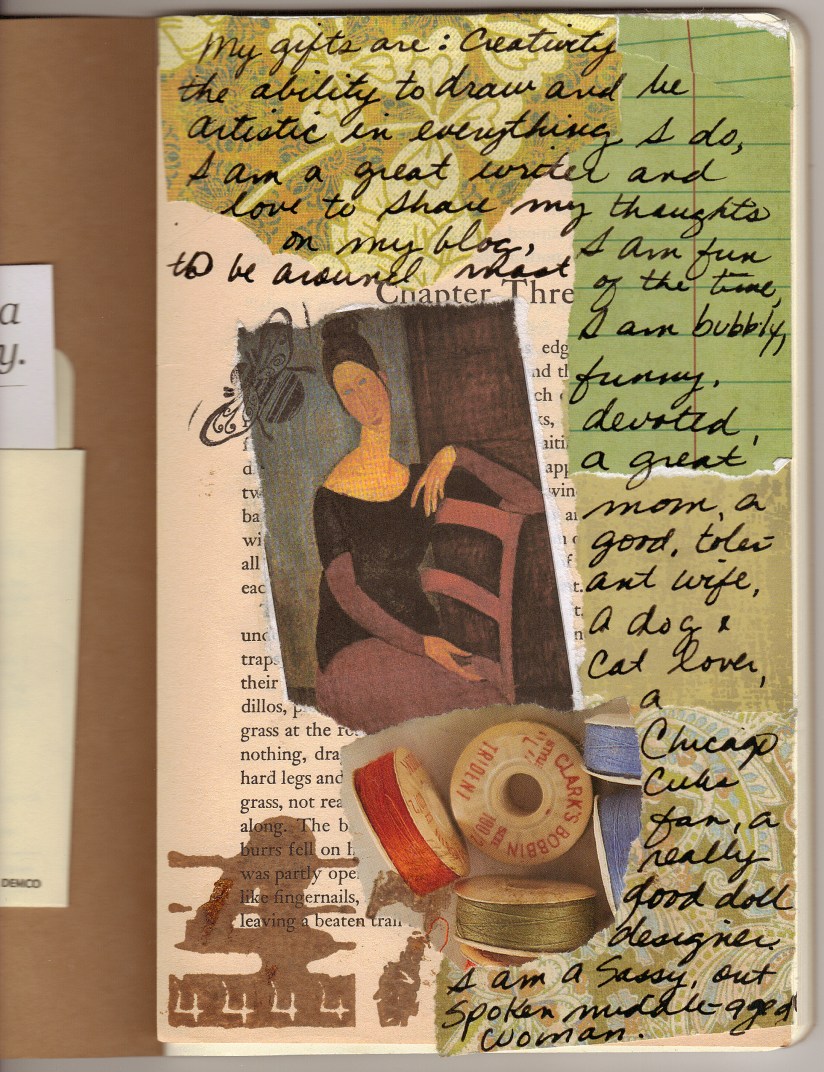 My gifts are: Creativity
the ability to draw and be
artistic in everything I do,
I am a great writer and
love to share my thoughts
on my blog, I am fun
to be around most of the time,
I am bubbly,
funny,
devoted,
a great
mom, a
good, toler-
ant wife,
a dog &
cat lover,
a
Chicago
Cubs
fan, a
really
good doll
designer.
I am a sassy, out
spoken middle-aged
woman.
Chapter Thre
edg
all
eac
und
traps
their
dillos,
grass at the
nothing, dra
hard legs and
grass, not rea
along. The b
burrs fell on h
was partly ope
like fingernails,
leaving a beaten trail
CLARK'S BOBBIN
TRIDENT
4 4 4 4
a
y.
DEMCO